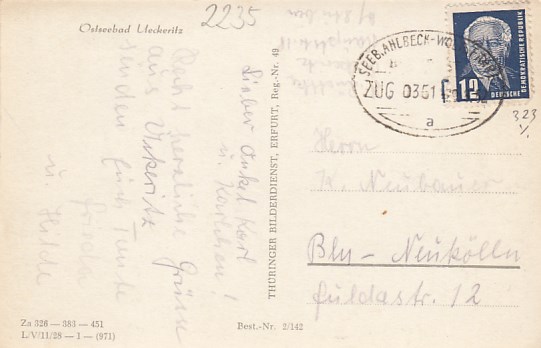 Ostseebad Ueckeritz
2235
Lieber Onkel Karl
u. Karlchen!
Noch herzliche Grüsse
aus Ückeritz
senden Euch Tante
Frieda
u. Hilde
THÜRINGER BILDERDIENST, ERFURT, Reg.-Nr. 49
SEEB.AHLBECK-WOL
ZUG 0351
a
DEUTSCHE
DEMOKRATISCHE REPUBLIK
12
323
Herrn
K. Neubauer
Bln - Neukölln
Fuldastr. 12
Za 326 — 383 — 451
L/V/11/28 — 1 — (971)
Best.-Nr. 2/142